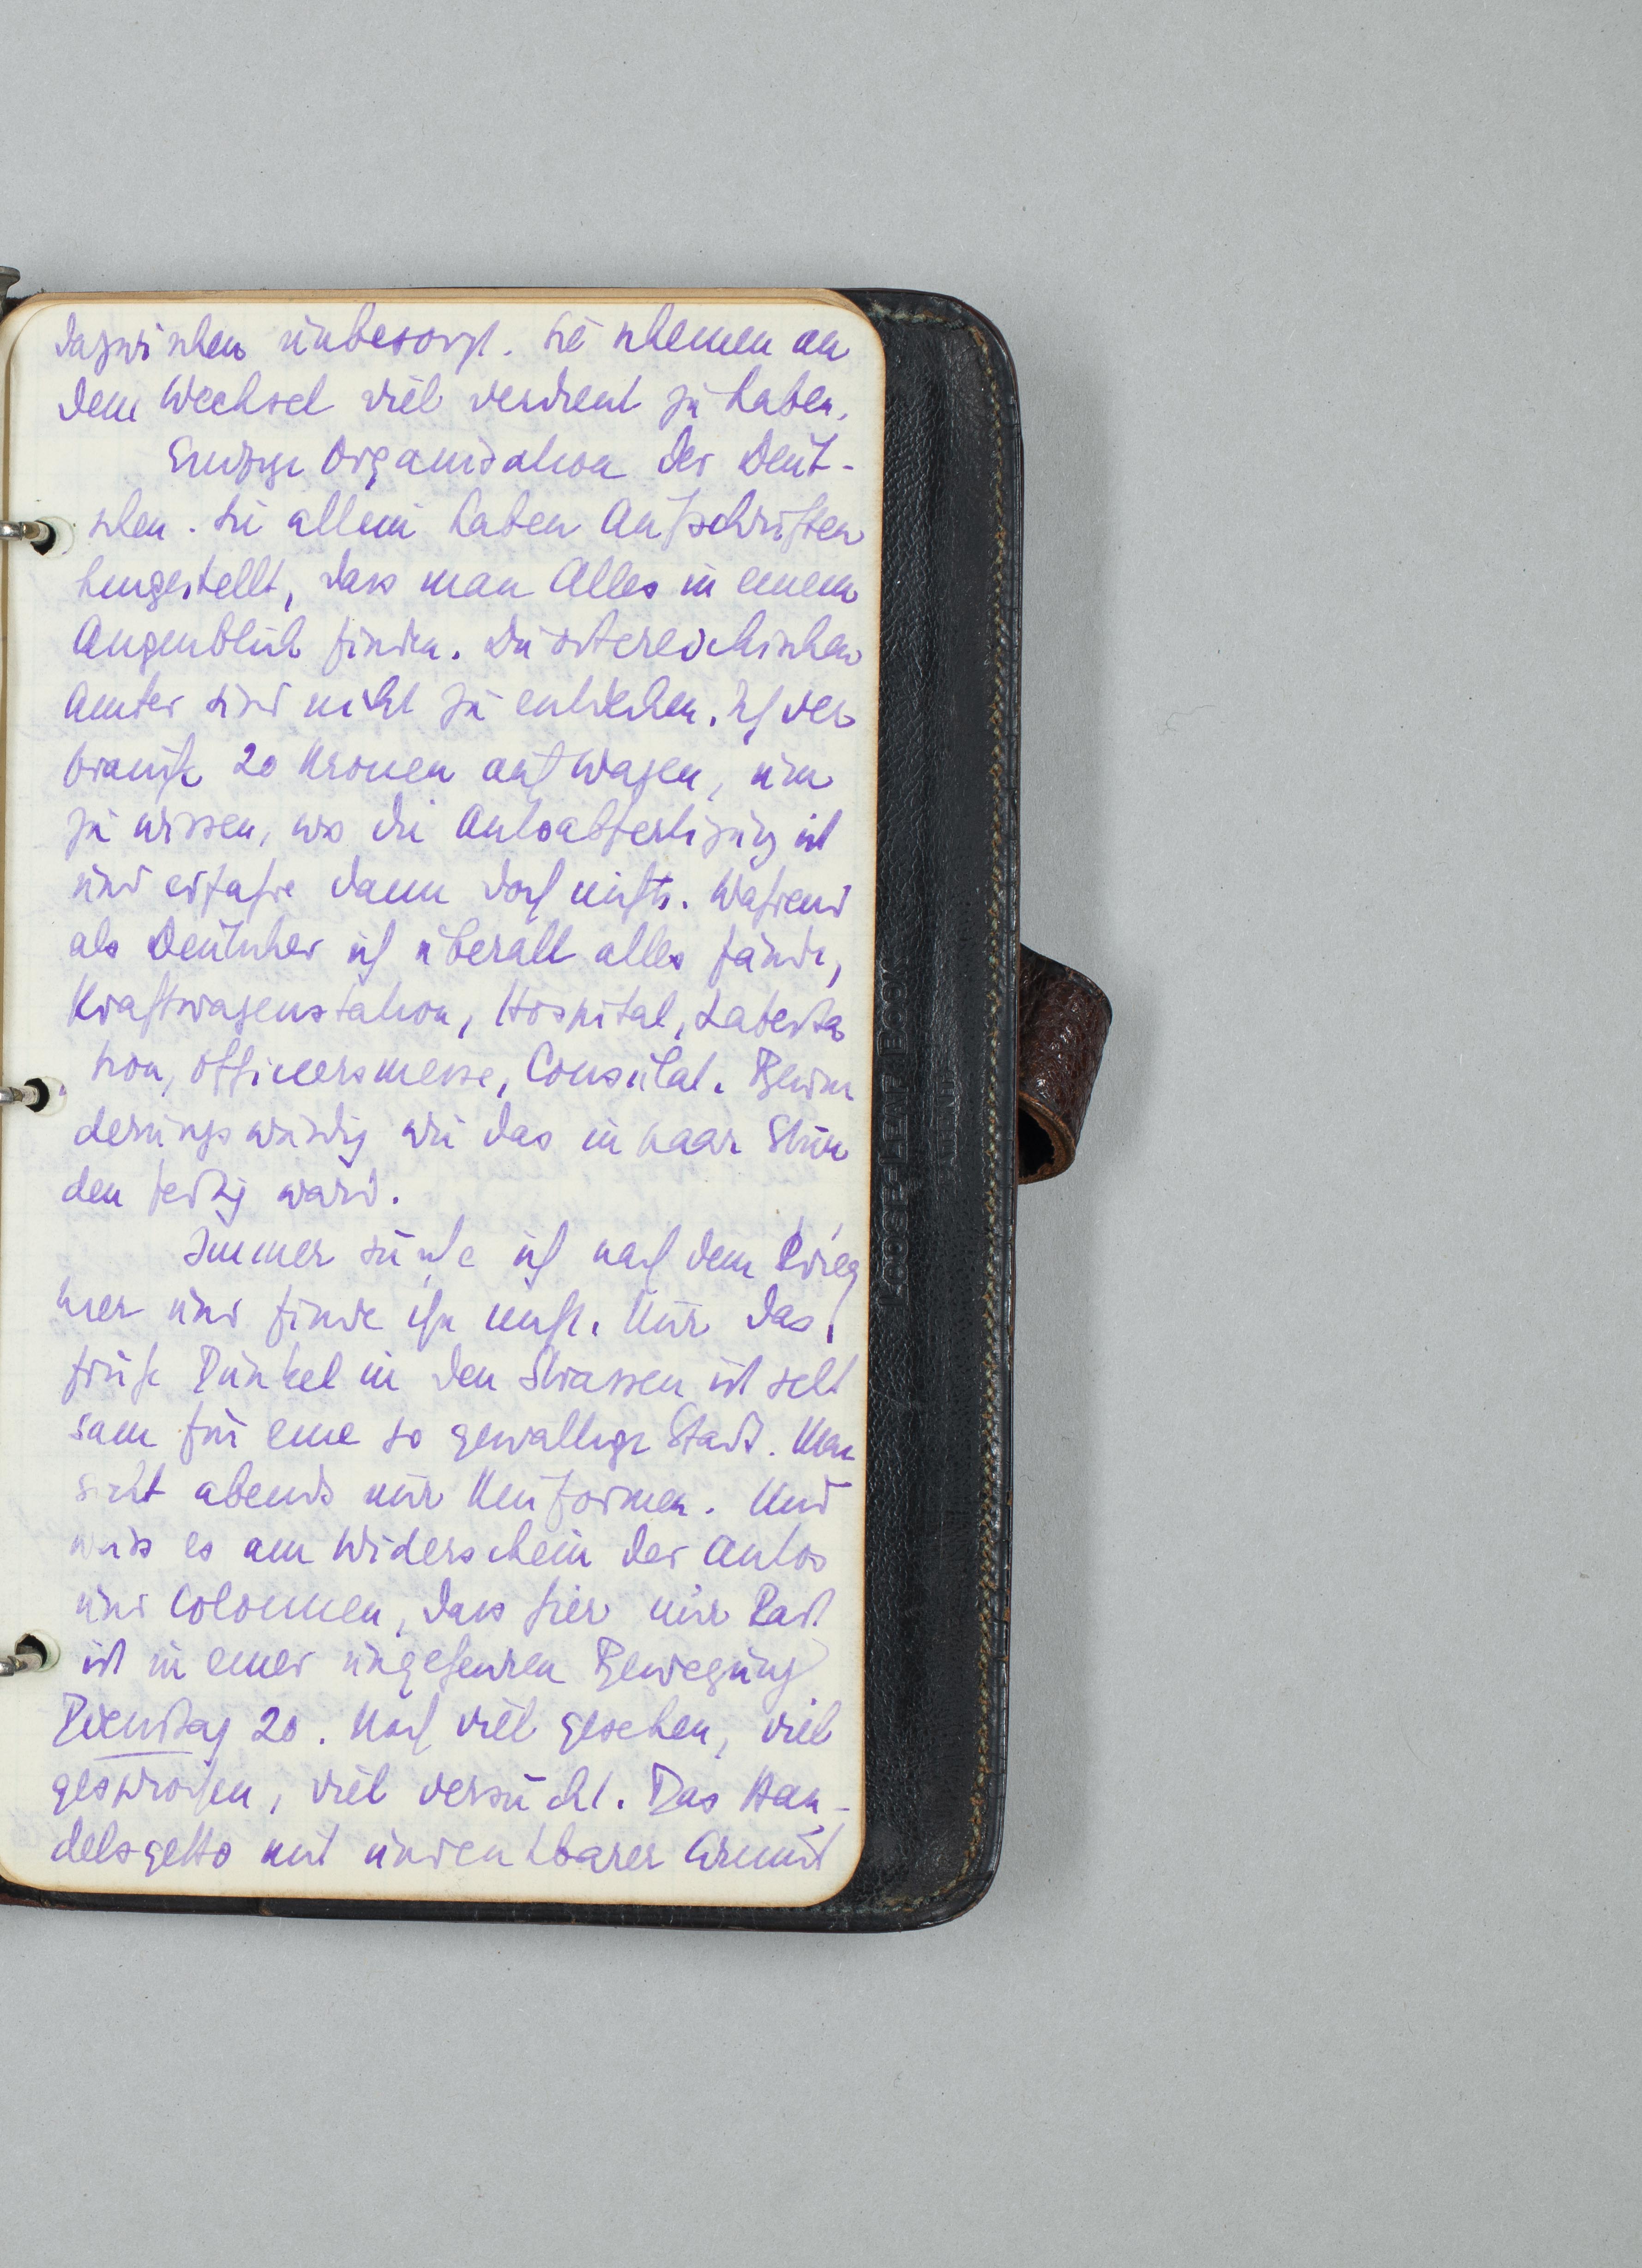 dazwischen unbesorgt. Sie scheinen an
dem Wechsel viel verdient zu haben.
Einzige Organisation der Deut-
schen. Sie allein haben Aufschriften
hingestellt, dass man Alles in einem
Augenblick finden. Die östereichischen
Ämter sind nicht zu entdecken. Ich ver
brauche 20 Kronen auf Wagen, um
zu wissen, wo die Autoabfertigung ist
und erfahre dann doch nichts. Während
als Deutscher ich überall alles fände,
Kraftwagenstation, Hospital, Labesta
tion, Officiersmesse, Consulat. Bewun
derungswürdig wie das in paar Stun
den fertig ward.
Immer suche ich nach dem Krieg
hier und finde ihn nicht. Nur das
frühe Dunkel in den Strassen ist selt
sam für eine so gewaltige Stadt. Man
sieht abends nur Uniformen. Und
weiss es am Widerschein der Autos
und Colonnen, dass hier nur Rast
ist in einer ungeheuren Bewegung
Dienstag 20. Noch viel gesehen, viel
gesprochen, viel versucht. Das Han-
delsgetto mit undenkbarer Armut
LOOSE-LEAF BOOK